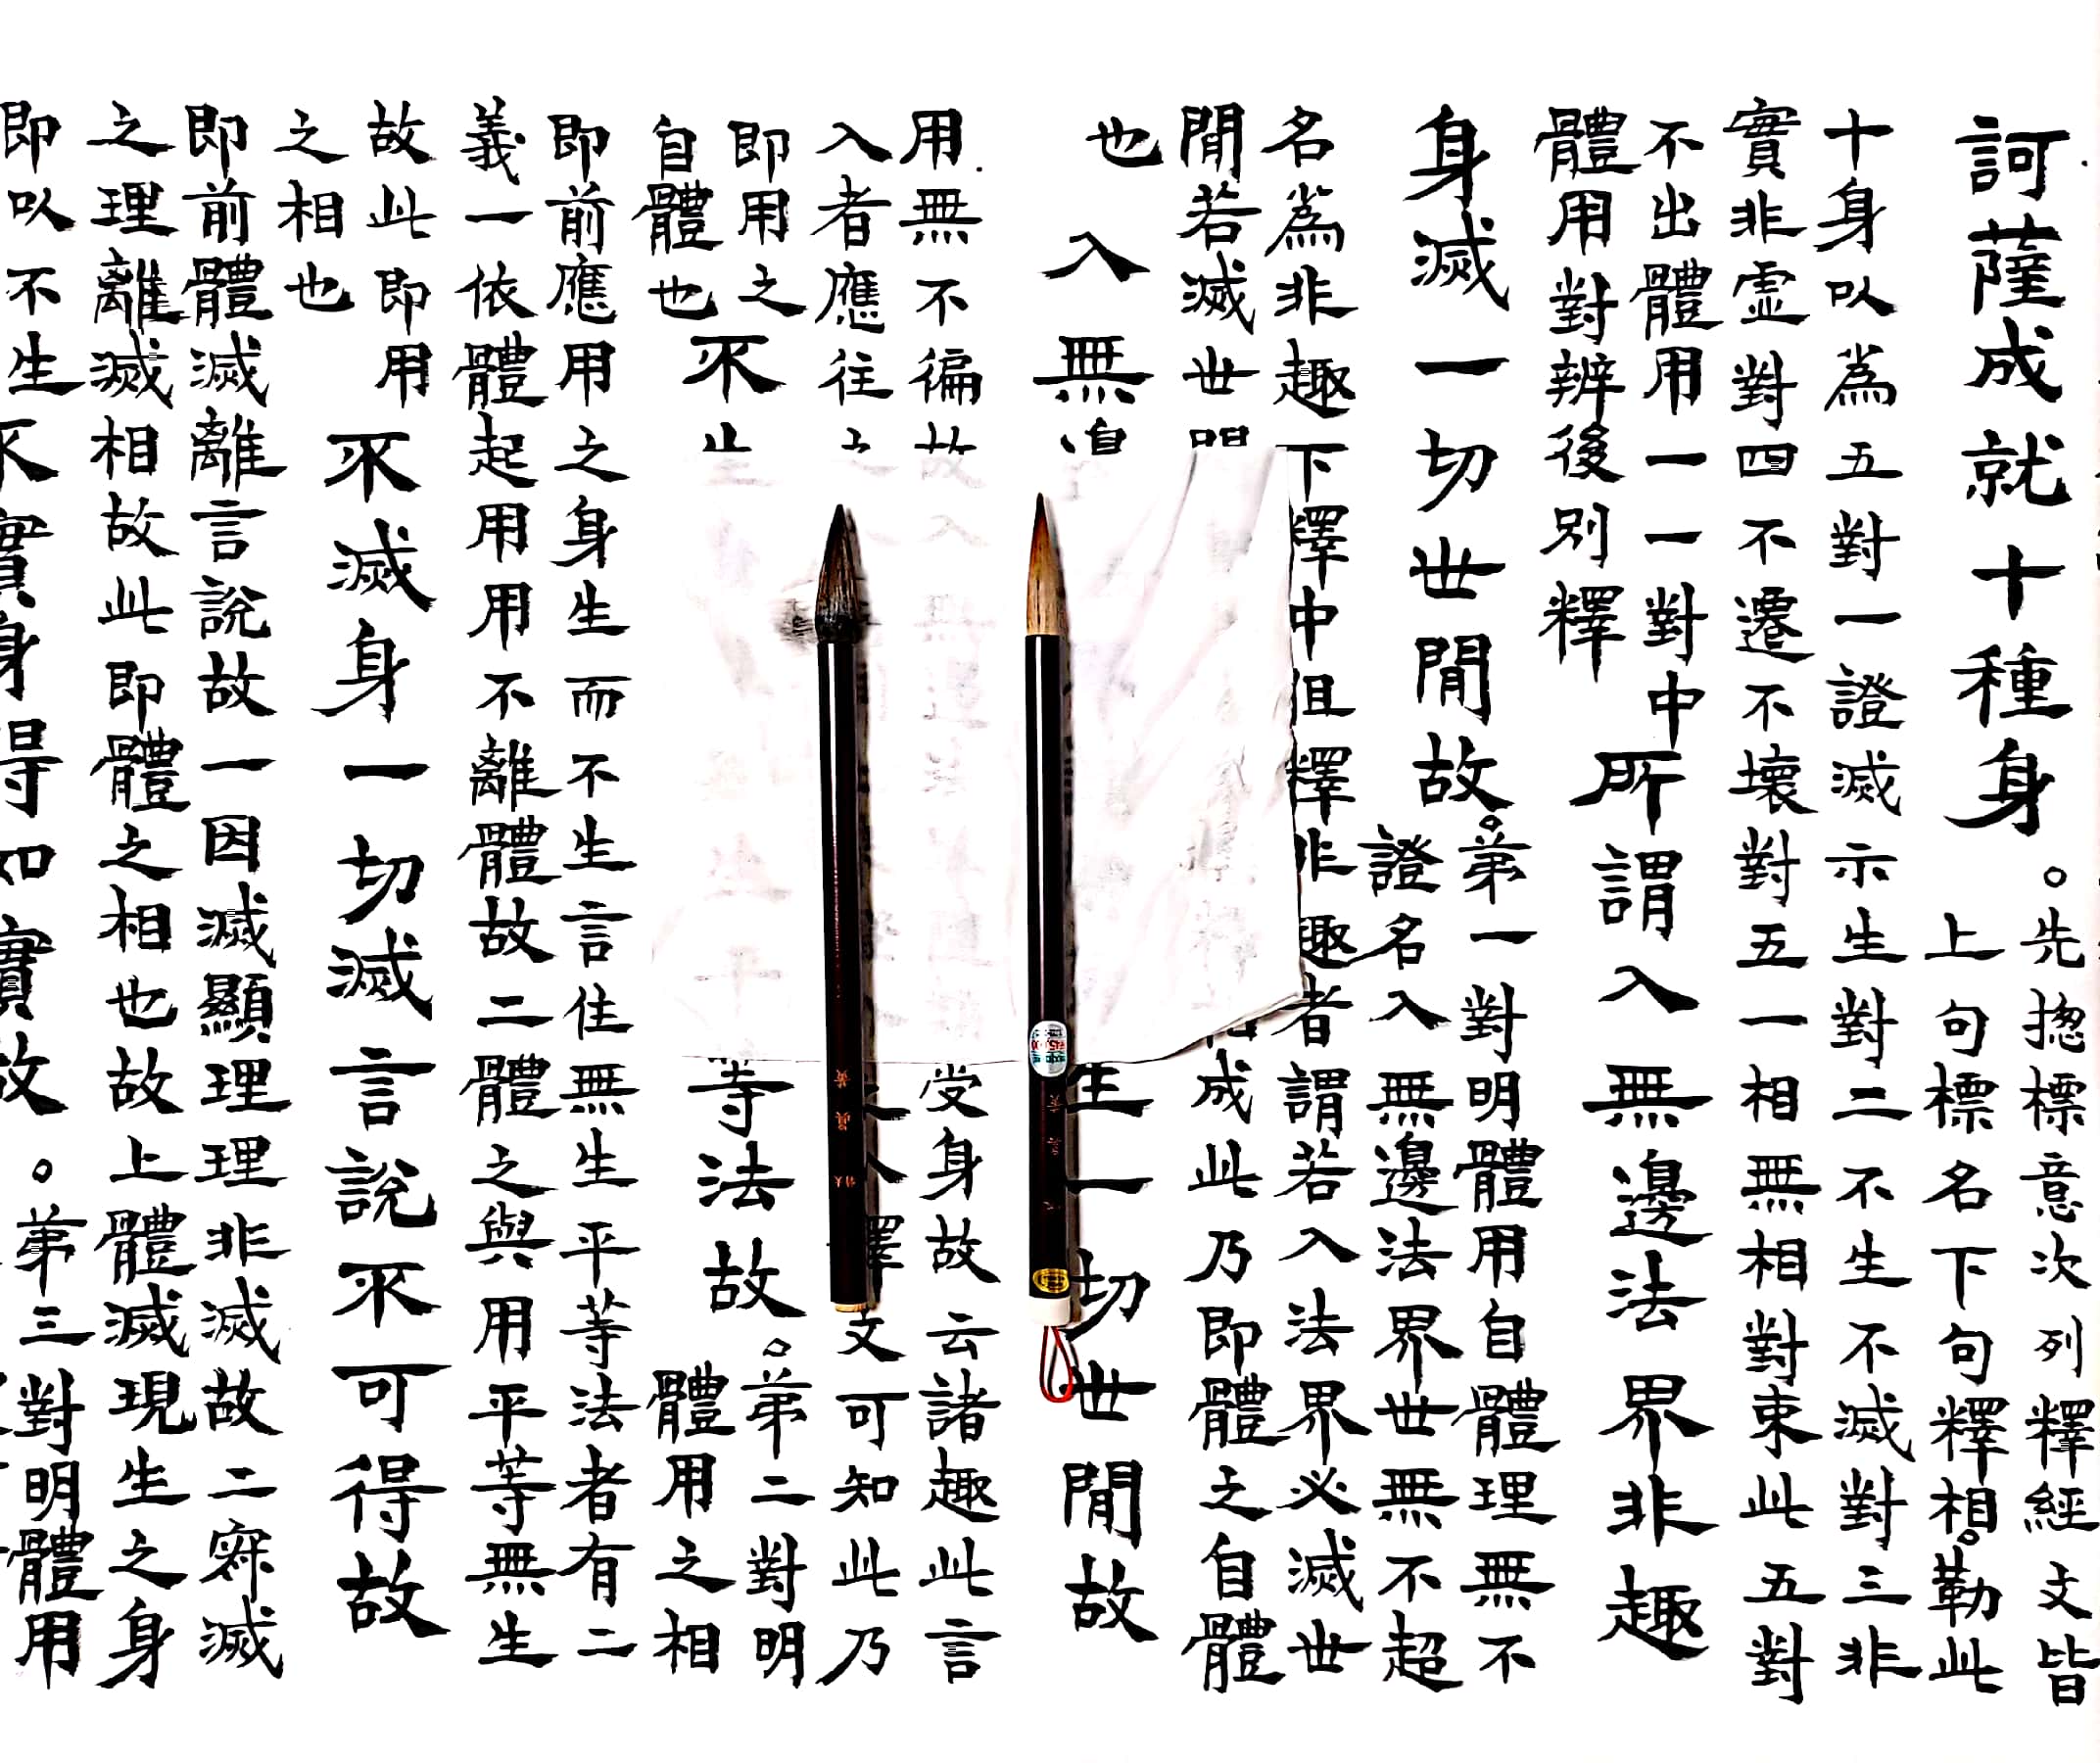 訶薩成就十種身。
先揔標意次列釋經文皆
上句標名下句釋相。勒此
十身以爲五對一證滅示生對二不生不滅對三非
實非虛對四不遷不壞對五一相無相對束此五對
不出體用一一對中
體用對辨後別釋
所謂入無邊法界非趣
身滅一切世閒故。
第一對明體用自體理無不
證名入無邊法界世無不超
名爲非趣下釋中但釋非趣者謂若入法界必滅世
閒若滅世閒成此乃即體之自體
也
入無邊生一切世閒故
用無不徧故受身故云諸趣此言
入者應往之釋文可知此乃
即用之
自體也
不生等法故。
第二對明
體用之相
即前應用之身生而不生言住無生平等法者有二
義一依體起用用不離體故二體之與用平等無生
故此即用
之相也
不滅身一切滅言說不可得故
即前體滅離言說故一因滅顯理理非滅故二寂滅
之理離滅相故此即體之相也故上體滅現生之身
即以不生
不實身得如實故。
第三對明體用